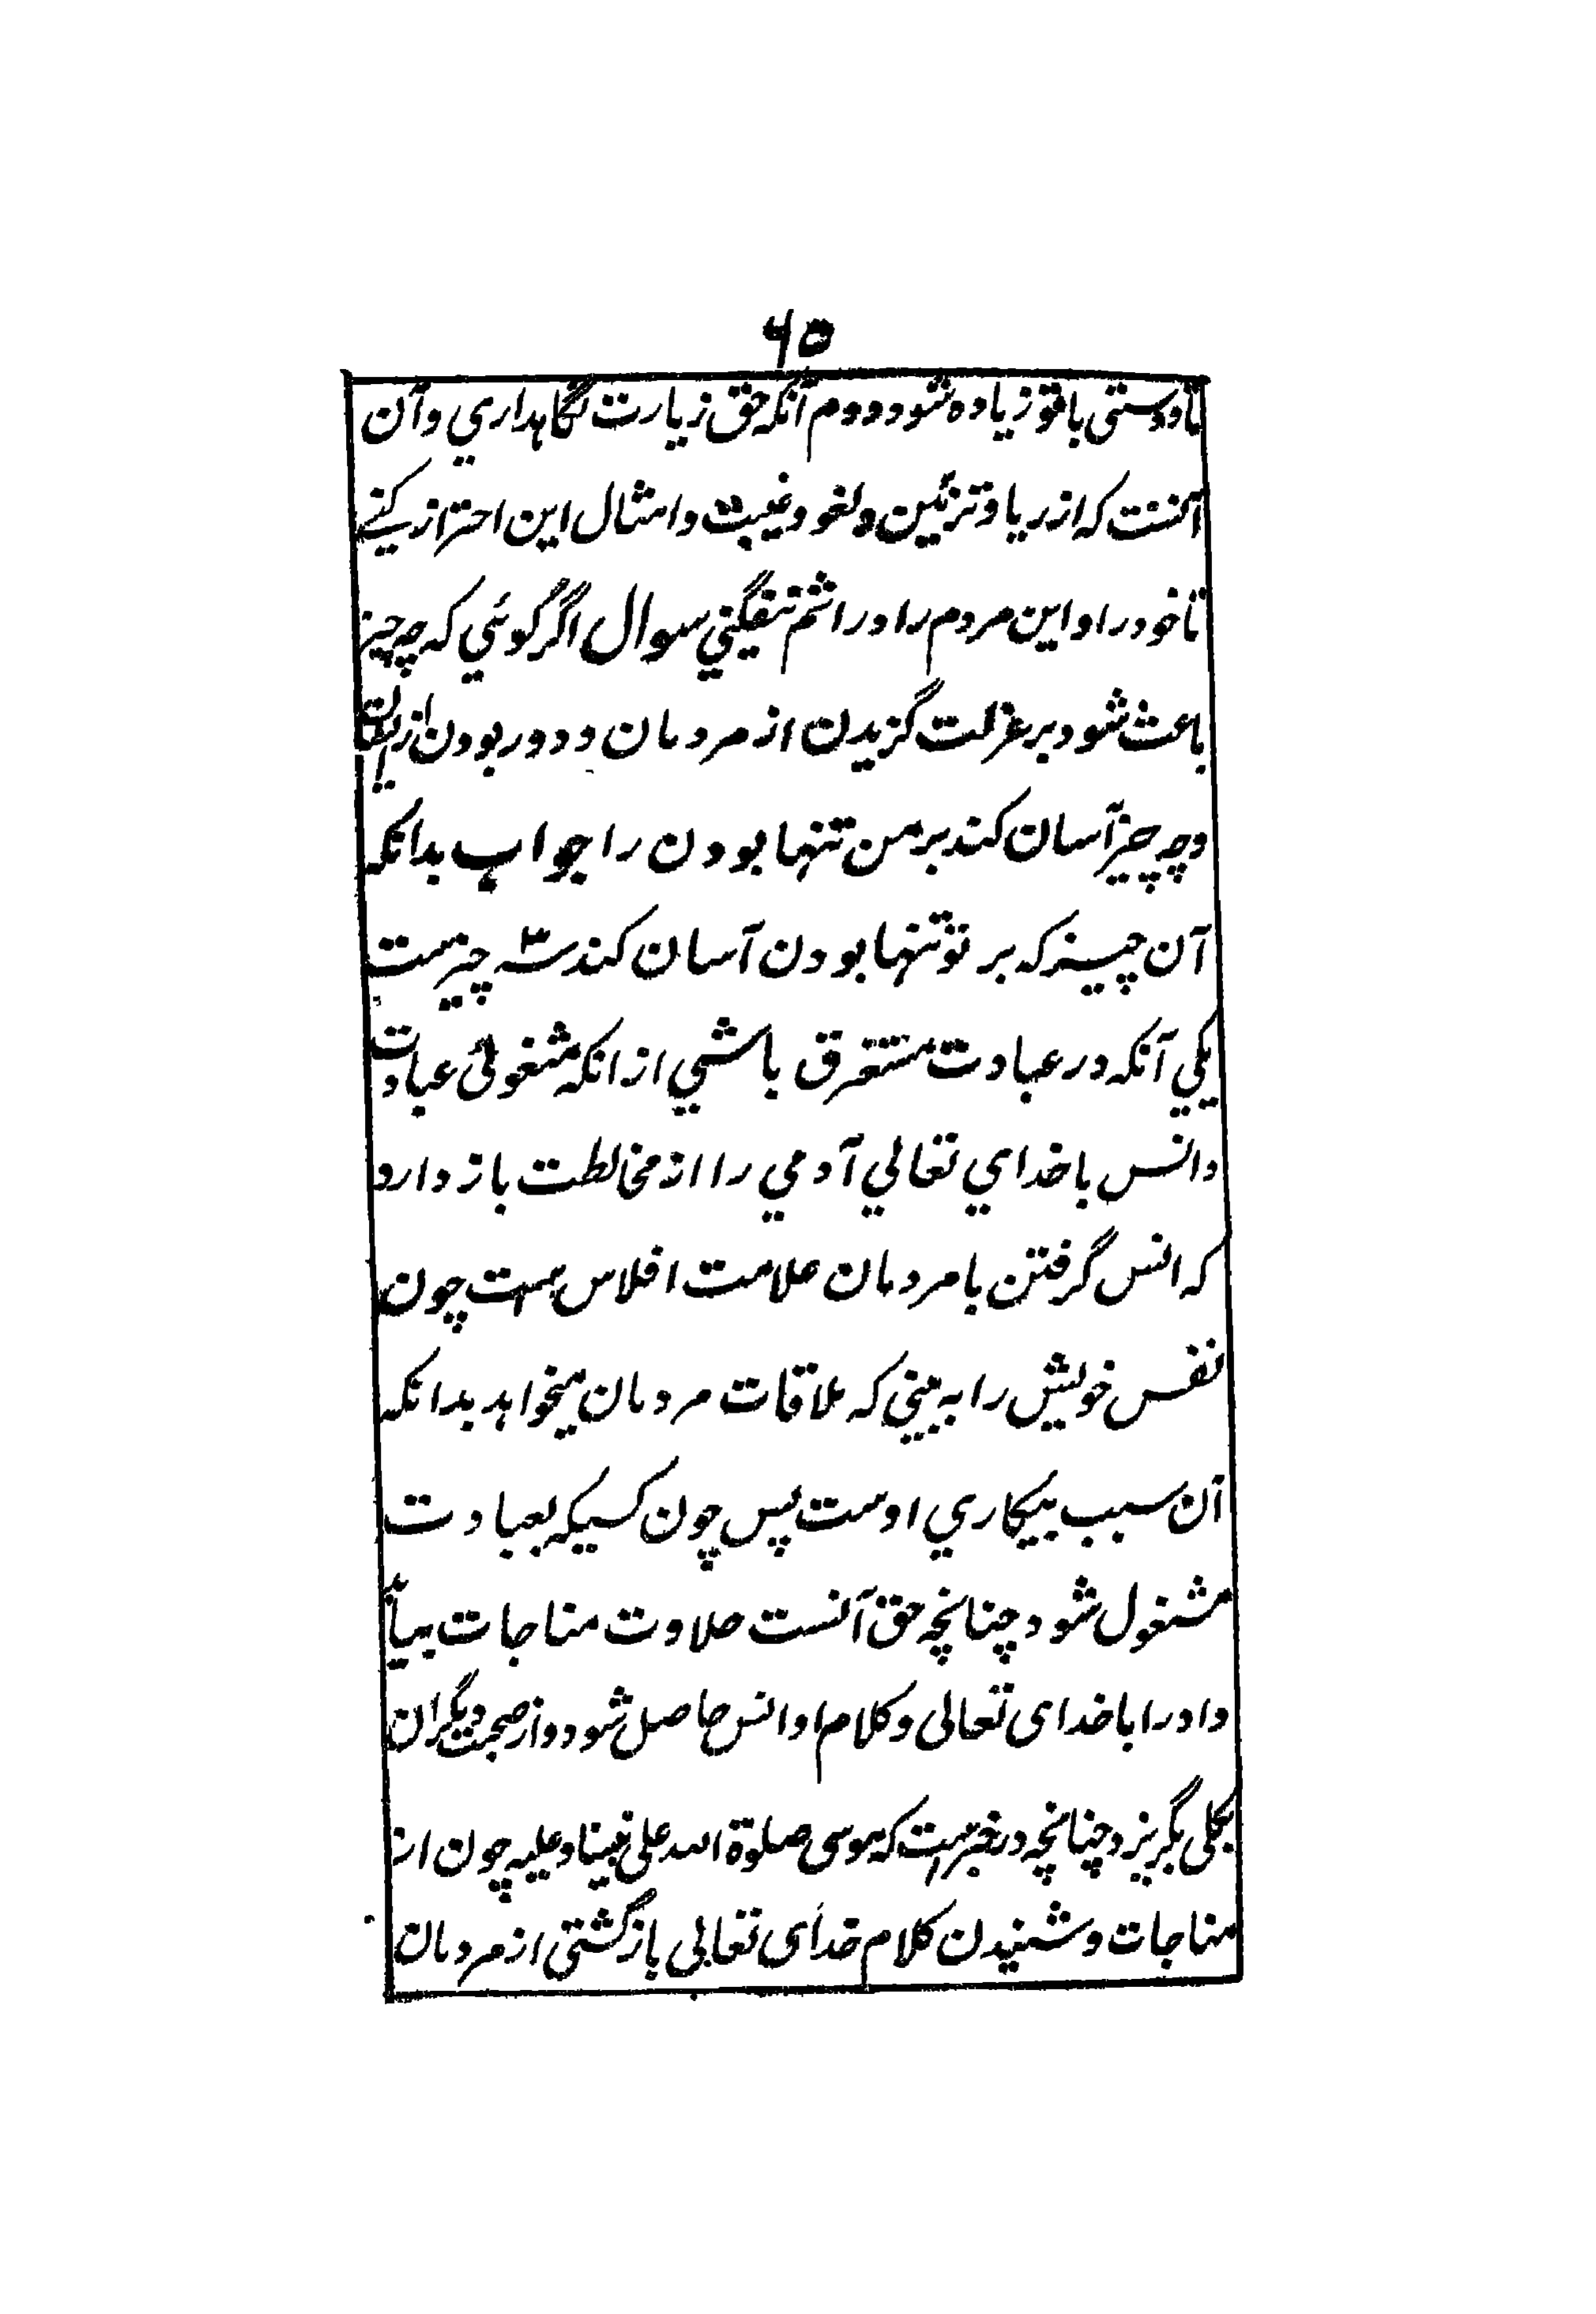 ۶۵
تا دوستی با تو زیاده شود دوم آنکه حق زیارت نگاهداري و آن
آنست که از ریا و تزئین و لغو و غیبت و امثال این احتراز کنے
تا خود را و این مردم را در اثم نیفگني سوال اگر گوئي که چه چیز
باعث شود بر عزلت گزیدن از مردمان و دور بودن از
و چه چیز آسان کند بر من تنها بودن را جواب بدانکه
آن چیز که بر تو تنها بودن آسان کند سه چیزست
یکي آنکه در عبادت مستغرق باشي از انکه مشغولئ عبادت
و انس با خداي تعالي آدمي را از مخالطت باز دارد
که انس گرفتن با مردمان علامت افلاس ست چون
نفس خویش را به بیني که ملاقات مردمان میخواهد بدانکه
آن سبب بیکاري اوست پس چون کسیکه بعبادت
مشغول شود چنانچه حق آنست حلاوت مناجات بیابد
و او را با خدای تعالی و کلام او انس حاصل شود و از صحبت دیگران
بکلی بگریزد چنانچه در خبرست که موسی صلوة الله علی نبینا و علیه چون از
مناجات و شنیدن کلام خدای تعالی بازگشتی از مردمان